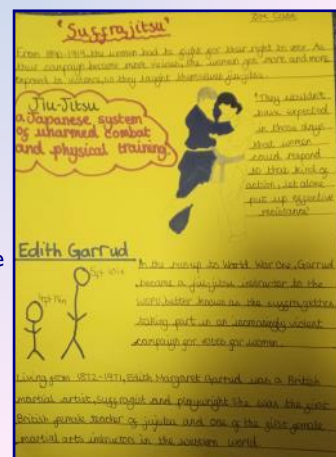 'Suffrajitsu'
From 1890-1919, the women had to fight for their right to vote. As
their campaign became more vicious, the women got more and more
exposed to violence, so they taught themselves jiu-jitsu.
Jiu-Jitsu
a Japanese system
of unarmed combat
and physical training
"They wouldn't
have expected
in those days
that women
could respond
to that kind of
action, let alone
put up effective
resistance"
Edith Garrud
4ft 11in
5ft 10in
In the run up to World War One, Garrud
became a jiu-jitsu instructor to the
WSPU, better known as the suffragettes
taking part in an increasingly violent
campaign for votes for women.
Living from 1872-1971, Edith Margaret Garrud was a British
martial artist, suffragist and playwright. She was the first
British female teacher of jujutsu and one of the first female
martial arts instructors in the western world.